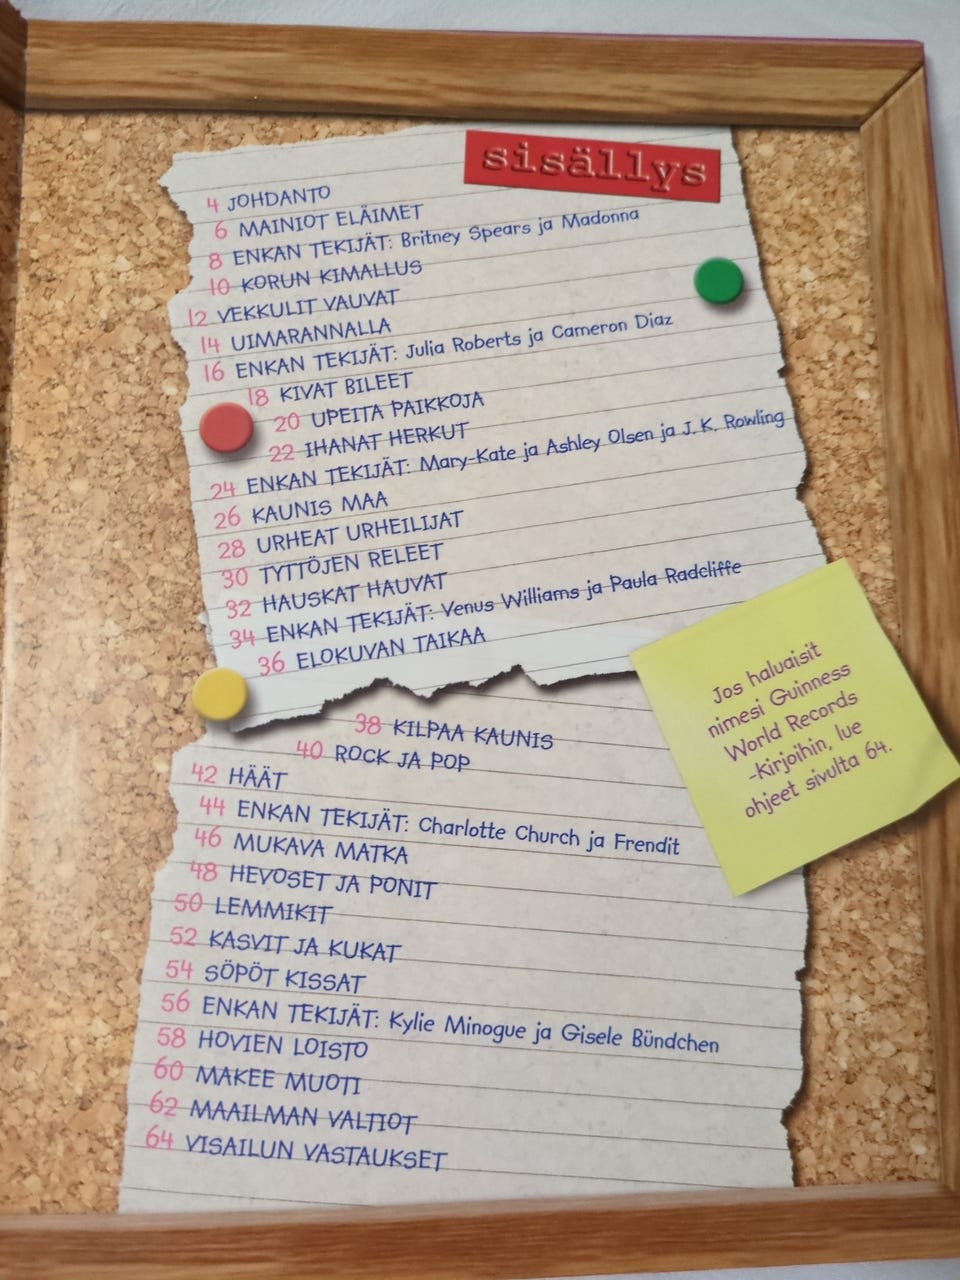 sisällys
4 JOHDANTO
6 MAINIOT ELÄIMET
8 ENKAN TEKIJÄT: Britney Spears ja Madonna
10 KORUN KIMALLUS
12 VEKKULIT VAUVAT
14 UIMARANNALLA
16 ENKAN TEKIJÄT: Julia Roberts ja Cameron Diaz
18 KIVAT BILEET
20 UPEITA PAIKKOJA
22 IHANAT HERKUT
24 ENKAN TEKIJÄT: Mary-Kate ja Ashley Olsen ja J. K. Rowling
26 KAUNIS MAA
28 URHEAT URHEILIJAT
30 TYTTÖJEN RELEET
32 HAUSKAT HAUVAT
34 ENKAN TEKIJÄT: Venus Williams ja Paula Radcliffe
36 ELOKUVAN TAIKAA
38 KILPAA KAUNIS
40 ROCK JA POP
42 HÄÄT
44 ENKAN TEKIJÄT: Charlotte Church ja Frendit
46 MUKAVA MATKA
48 HEVOSET JA PONIT
50 LEMMIKIT
52 KASVIT JA KUKAT
54 SÖPÖT KISSAT
56 ENKAN TEKIJÄT: Kylie Minogue ja Gisele Bündchen
58 HOVIEN LOISTO
60 MAKEE MUOTI
62 MAAILMAN VALTIOT
64 VISAILUN VASTAUKSET
Jos haluaisit
nimesi Guinness
World Records
-Kirjoihin, lue
ohjeet sivulta 64.